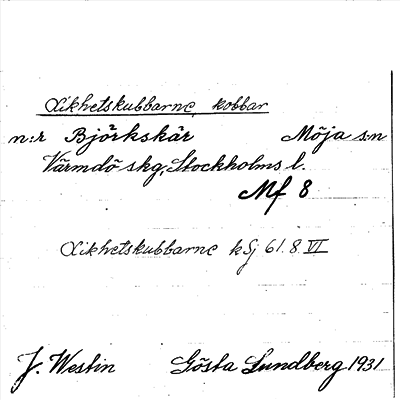 Likhetskubbarne, kobbar
n:r Björkskär Möja s:n
Värmdö skg, Stockholms l.
Mf 8
Likhetskubbarne k Sj 61. 8. VI
J. Westin Gösta Lundberg 1931